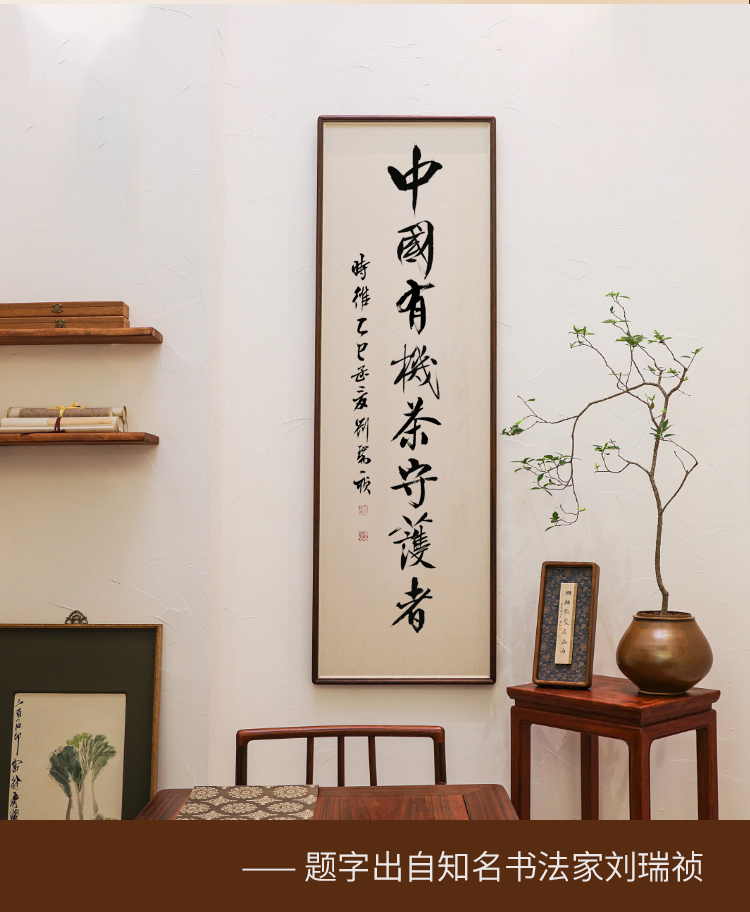 中國有機茶守護者
時維乙巳孟夏劉瑞禎
—— 题字出自知名书法家刘瑞祯